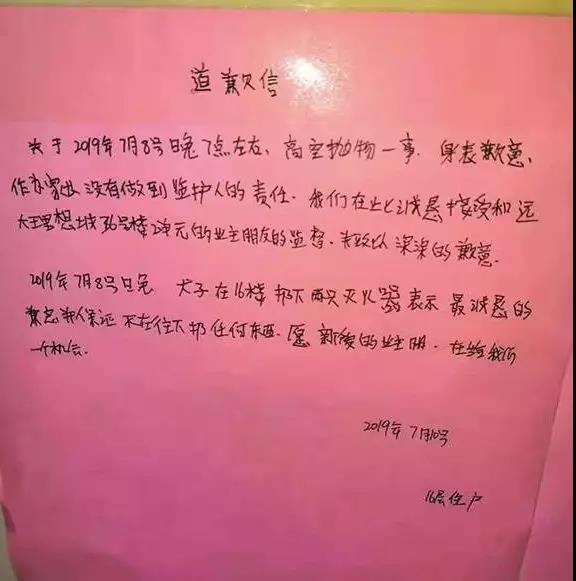 道歉信
关于2019年7月8号晚7点左右,高空抛物一事.身表歉意,
作为家长没有做到监护人的责任.我们在此诚恳接受和远
大理想城36号楼2单元的业主朋友的监督.并致以深深的歉意.
2019年7月8号晚 犬子在16楼扔下两只灭火器表示最诚恳的
并保证不在往下扔任何东西.愿 的业主朋.在给我们
一个机会.
2019年7月10号
16层住户